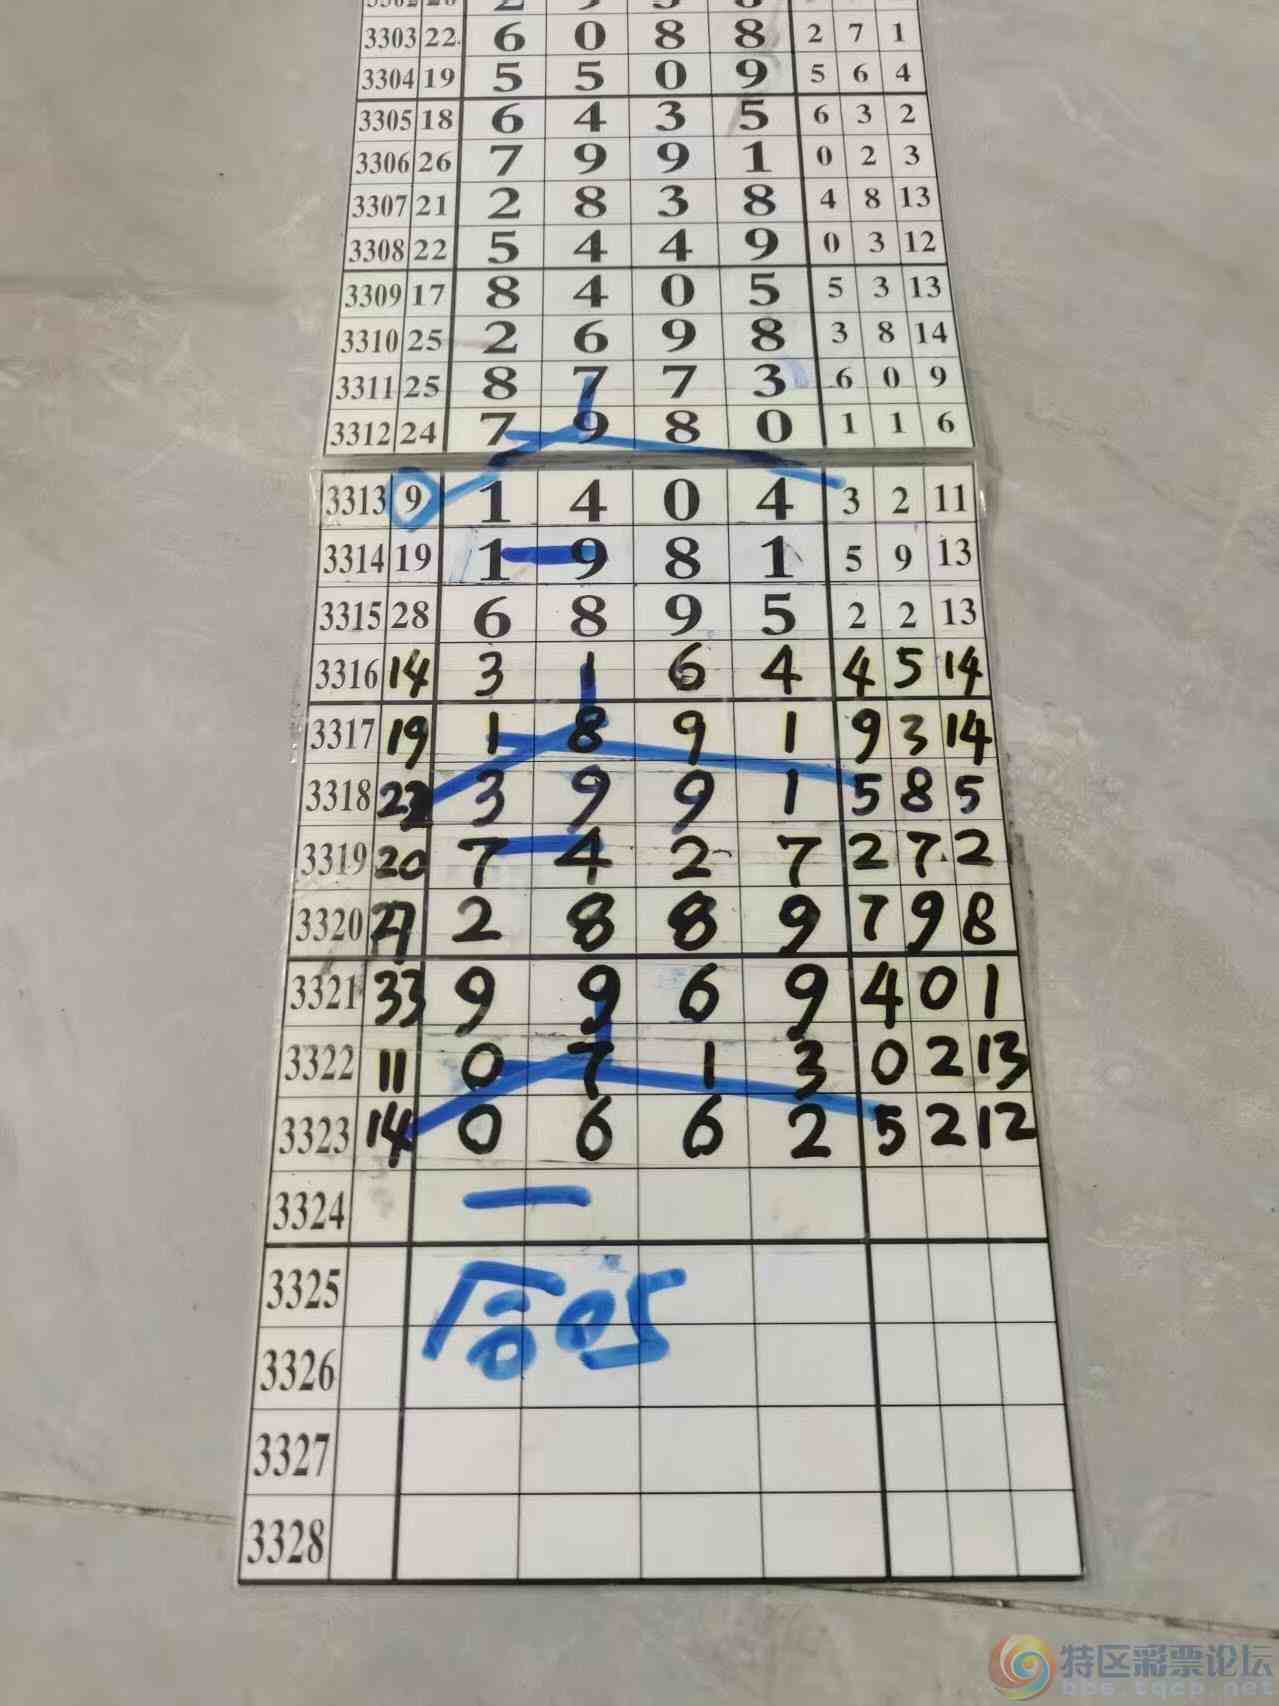 3303 22 6 0 8 8 2 7 1
3304 19 5 5 0 9 5 6 4
3305 18 6 4 3 5 6 3 2
3306 26 7 9 9 1 0 2 3
3307 21 2 8 3 8 4 8 13
3308 22 5 4 4 9 0 3 12
3309 17 8 4 0 5 5 3 13
3310 25 2 6 9 8 3 8 14
3311 25 8 7 7 3 6 0 9
3312 24 7 9 8 0 1 1 6
3313 9 1 4 0 4 3 2 11
3314 19 1 9 8 1 5 9 13
3315 28 6 8 9 5 2 2 13
3316 14 3 1 6 4 4 5 14
3317 19 1 8 9 1 9 3 14
3318 22 3 9 9 1 5 8 5
3319 20 7 4 2 7 2 7 2
3320 27 2 8 8 9 7 9 8
3321 33 9 9 6 9 4 0 1
3322 11 0 7 1 3 0 2 13
3323 14 0 6 6 2 5 2 12
3324
3325
05
3326
3327
3328
特区彩票论坛
bbs.tqcp.net